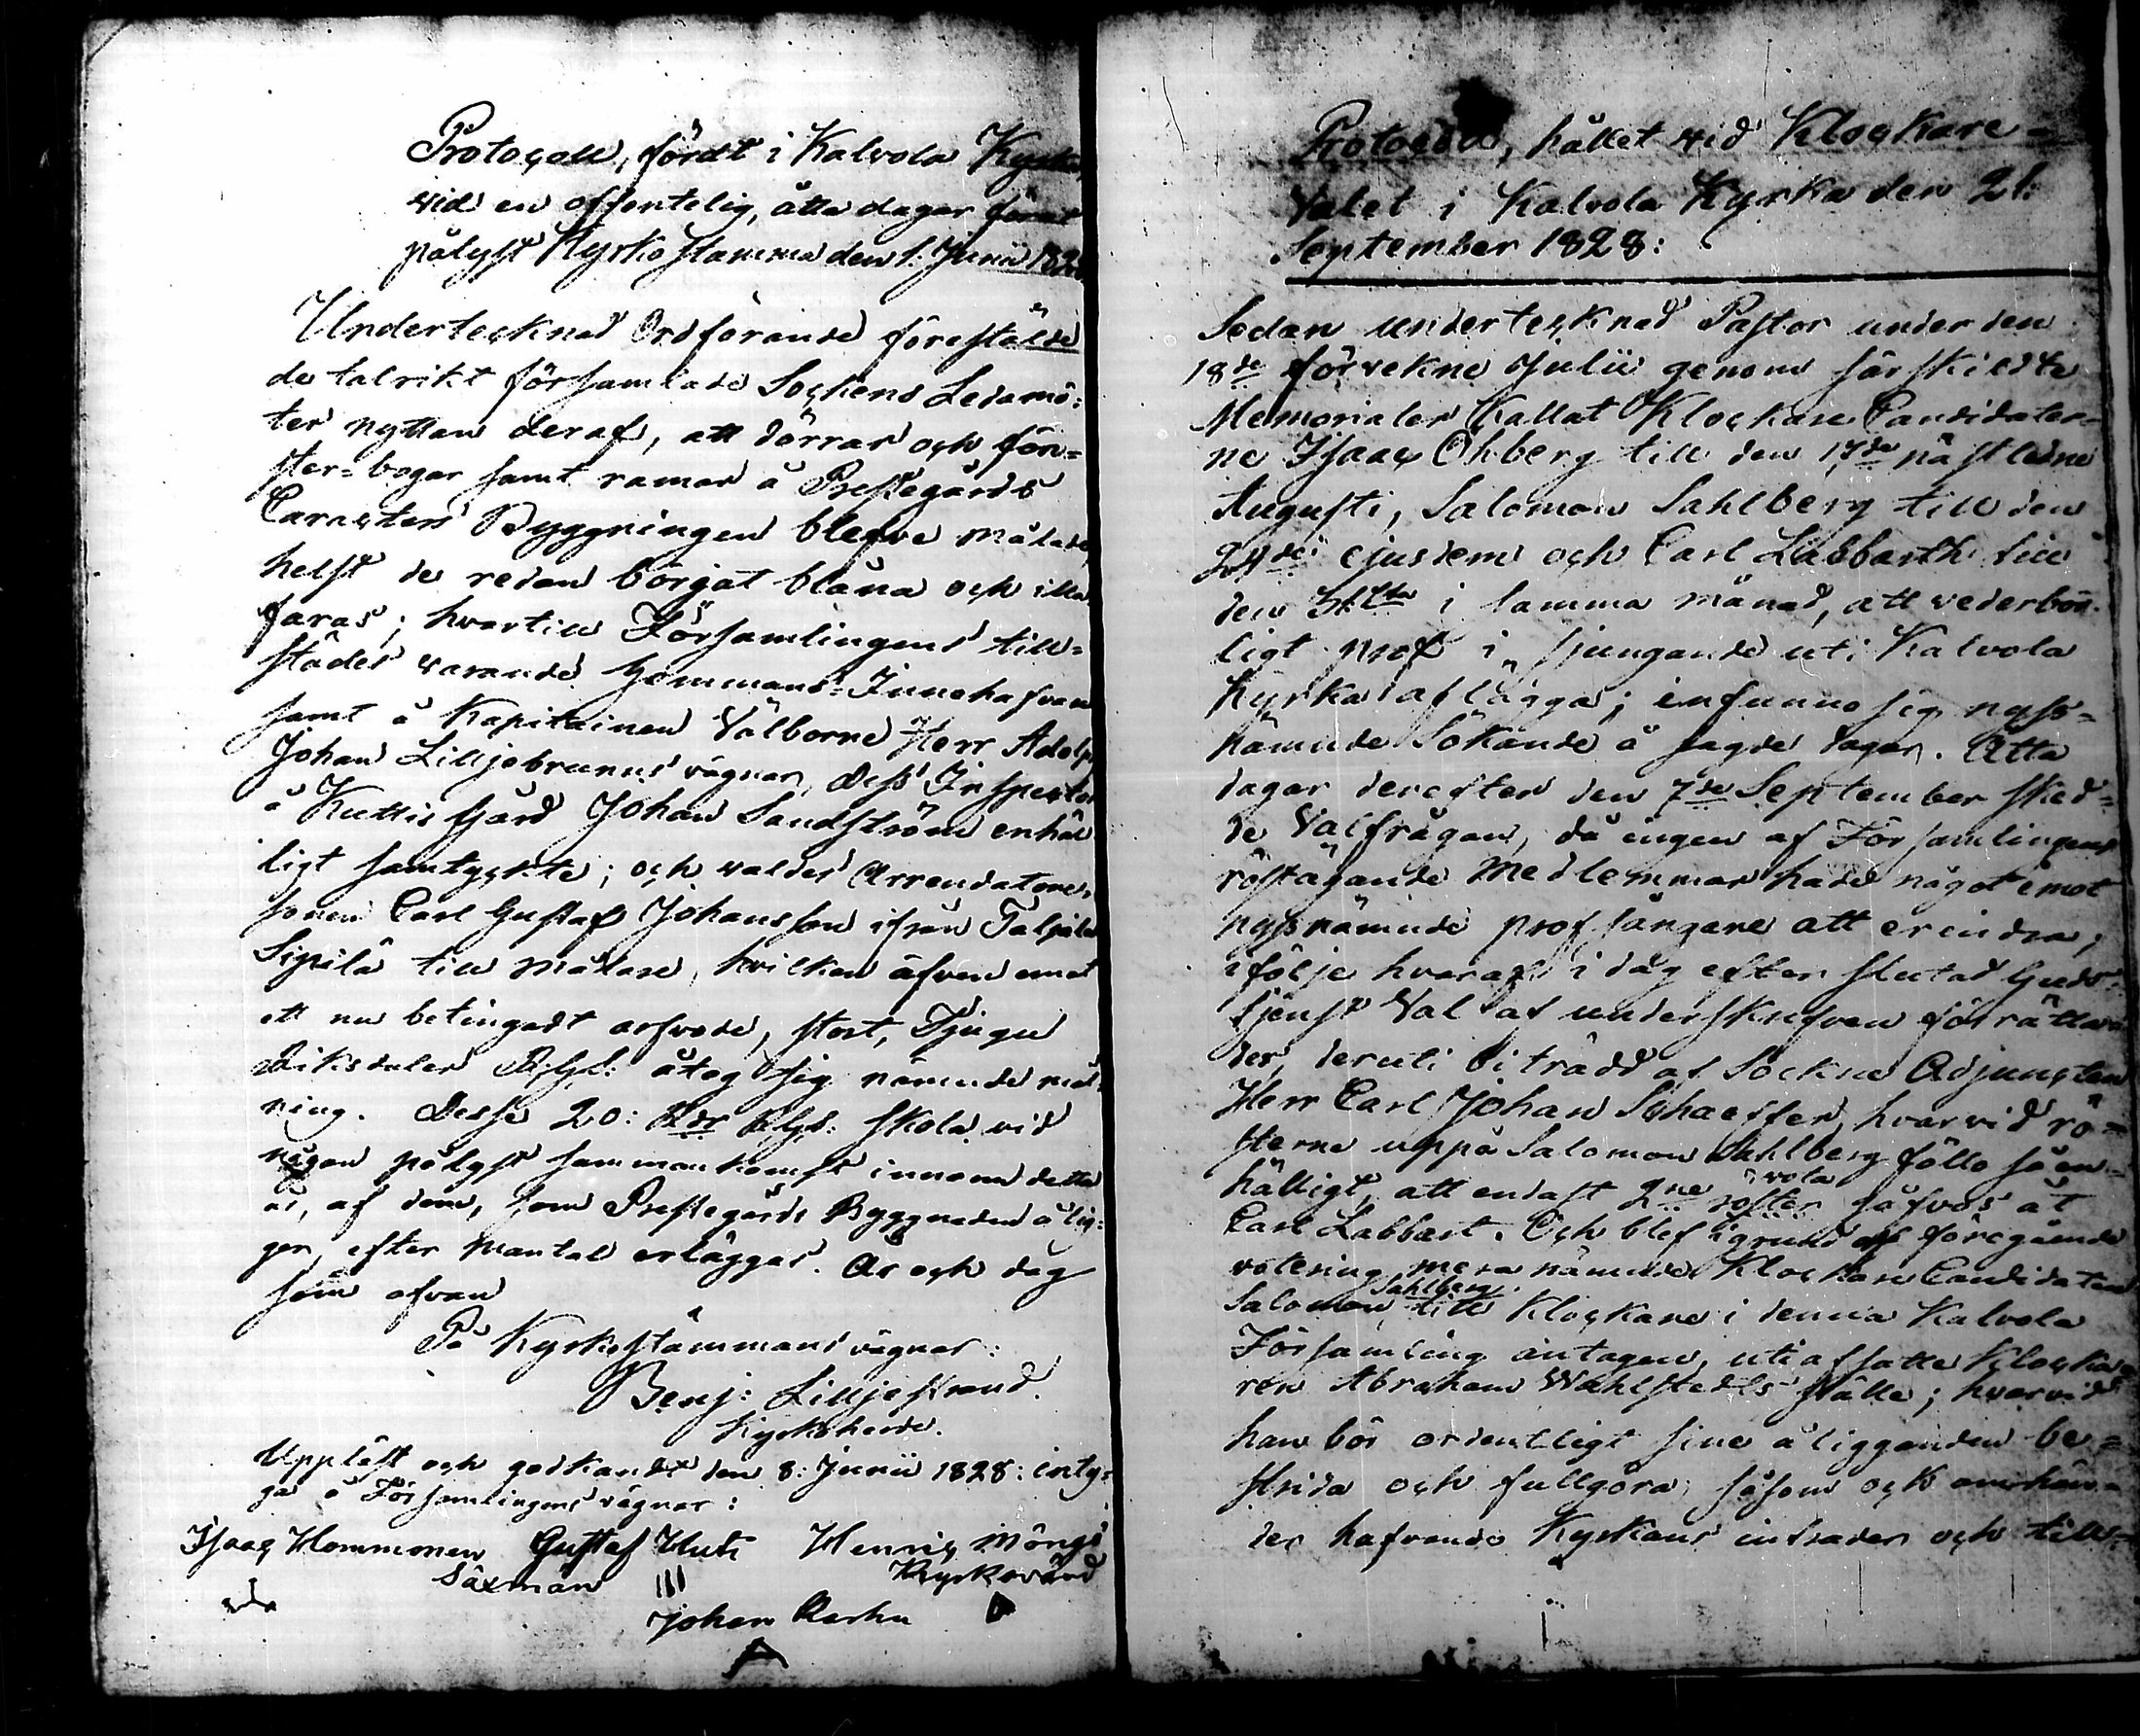 Protocoll, fördt i Kalvola Kyrka
vid en offentelig, åtta dagar förut
pålyst Kyrkostämma den 1. Junii 1828
Undertecknad Ordförande förestälde
de talrikt församlade Sockens Ledamö=
ter nyttan deraf, att dörrar och fön=
ster=bogar samt ramar å Prestegårds
Caracters Byggningen blefve målade,
helst de redan börjat blåna och illa
faras; hvartill Församlingens till=
städes varande Hemmans=Innehafvare
samt å Kapitainen Välborne Herr Adolph
Johan Lilljebrunns vägnar, Dess Inspector
å Kuttis gård Johan Sandström enhäl
ligt samtyckte; och valdes Arrendators
sonen Carl Gustaf Johansson ifrån Taljala
Sipilä till målare, hvilken äfven emot
ett nu betingadt arfvode, stort, Tjugu
Riksdaler Rigs: åtog sig nämnde mål
ning. Desse 20: Rdr Rgs: skola vid
någon pålyst sammankomst innom detta
år, af dem, som Prestegårds Byggnaden ålig=
ger, efter Mantal erläggas. År och dag
som ofvan
På Kyrkostämmans vägnar:
Benj: Lilljestrand.
Kyrkoherde.
Uppläst och godkändt den 8: Junii 1828: inty=
gar å Församlingens vägnar:
Isaac Hommonen Gustaf Huti Henric Möngö
Säxman Kyrkovärd
Johan Karhu
Protocoll, hållet vid Klockare=
Valet i Kalvola Kyrka den 21:
September 1828:
Sedan undertecknad Pastor under den
18de förvekne Julii genom särskildte
Memorialer kallat Klockare Candidater=
ne Isaac Öhberg till den 17de nästledne
Augusti, Salomon Sahlberg till den
24de ejusdem och Carl Labbarth till
den 31sta i samma månad, att vederbör=
ligt prof i sjungande uti Kalvola
Kyrka aflägga; infunno sig nyss=
nämnde Sökande å sagde dagar. Åtta
dagar derefter den 7de September sked=
de Valfrågan, då ingen af Församlingens
röstägande Medlemmar hade något emot
nyssnämnde profsångare att erindra;
i följe hvaraf i dag efter slutad Guds=
tjenst Val af underskrefven förrätta=
des, deruti biträdd af Sockne Adjuncten
Herr Carl Johan Schaeffer, hvarvid rö=
sterne uppå Salomon Sahlberg föllo så en=
hälligt, att endast 2ne röster gåfvos åt
Carl Labbart. Och blef i grund af föregående
votering mera nämnde Klockare Candidaten
Sahlberg
Salomon, till Klockare i denna Kalvola
Församling antagen, uti afsatte Klocka
ren Abraham Wahlstedts ställe; hvarvid
han bör ordentligt sine åligganden be=
strida och fullgöra, såsom ock om hän=
der hafvande Kyrkans intrader och till=